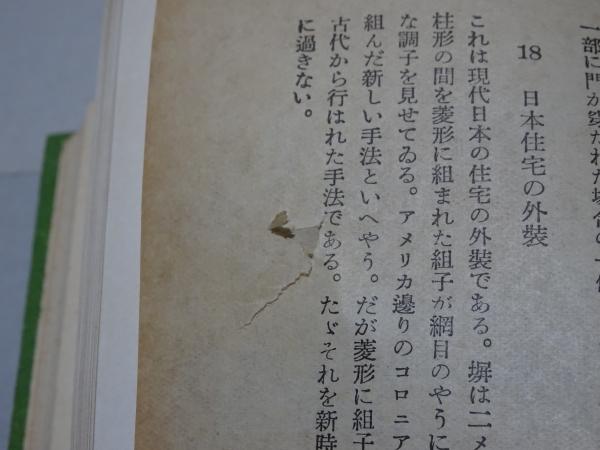 一部に門が
18 日本住宅の外裝
これは現代日本の住宅の外裝である。塀は二メ
柱形の間を菱形に組まれた組子が網目のやうに
な調子を見せてゐる。アメリカ邊りのコロニア
組んだ新しい手法といへやう。だが菱形に組子
古代から行はれた手法である。たゞそれを新時
に過ぎない。